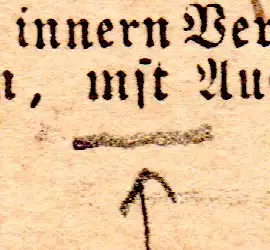 innern Ver
n, mſt Au